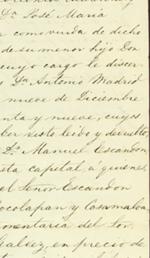 Dn. José María
como viuda de dicho
de su menor hijo Don
cuyo cargo le discer
Dn. Antonio Madrid
nueve de Diciembre
enta y nueve, cuyos
ber visto leido y devuelto,
Dn. Manuel Escandon
esta capital, á quienes,
el Señor Escandon
ocolapan y Cosamaloa
mentaria del Sor.
en precio de